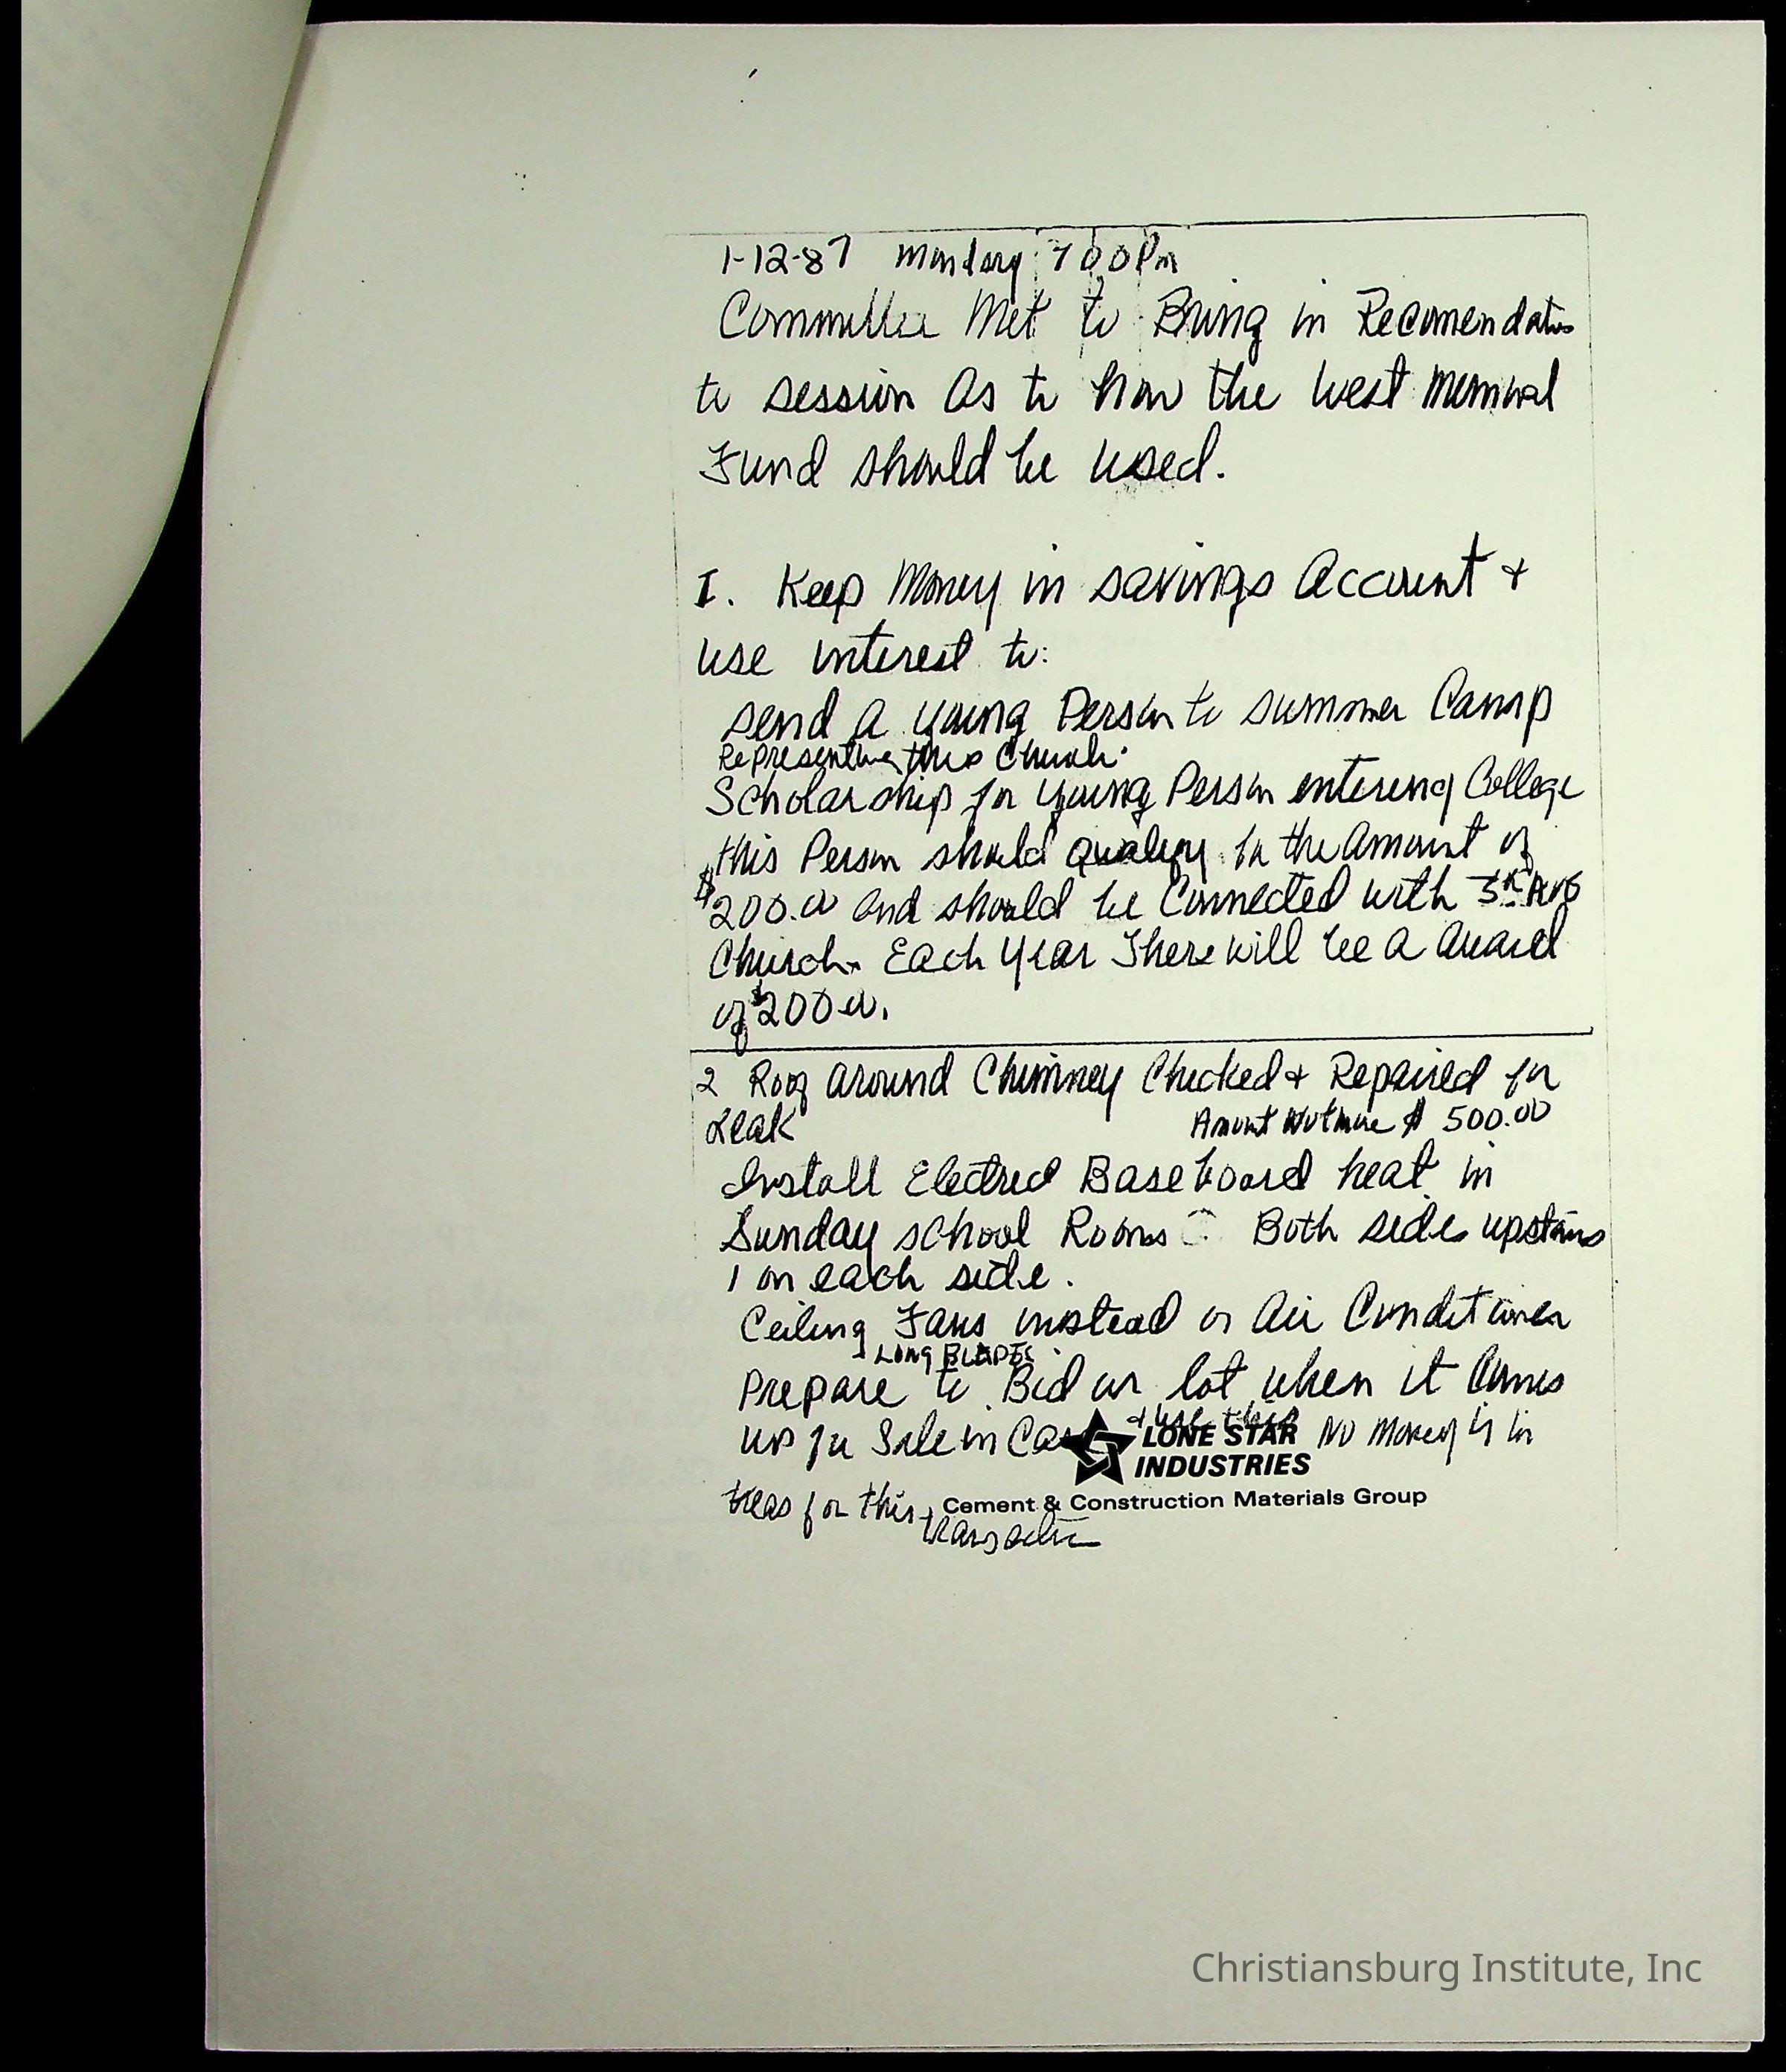 1-12-87 Monday 7 00 Pm
Committee Met to Bring in Recomendation
to session as to how the West Memorial
Fund should be used.
I. Keep Money in savings Account +
use interest to:
send a young Person to summer Camp
Representing this Church.
Scholarship for young Person entering College
this Person should qualify. In the amount of
$200.00 and should be Connected with 5th Ave
Church. Each Year There will be a award
of $200.00.
2 Roof around Chimney Checked + Repaired for
Leak Amount Not more $ 500.00
Install Electric Baseboard heat in
Sunday school Rooms Both sides upstairs
1 on each side.
Ceiling Fans instead of Air Conditioner
Long BLADES
Prepare to Bid on lot when it Comes
up for Sale in Case + use this No Money is in
LONE STAR
INDUSTRIES
treas for this
Cement & Construction Materials Group
transaction
Christiansburg Institute, Inc